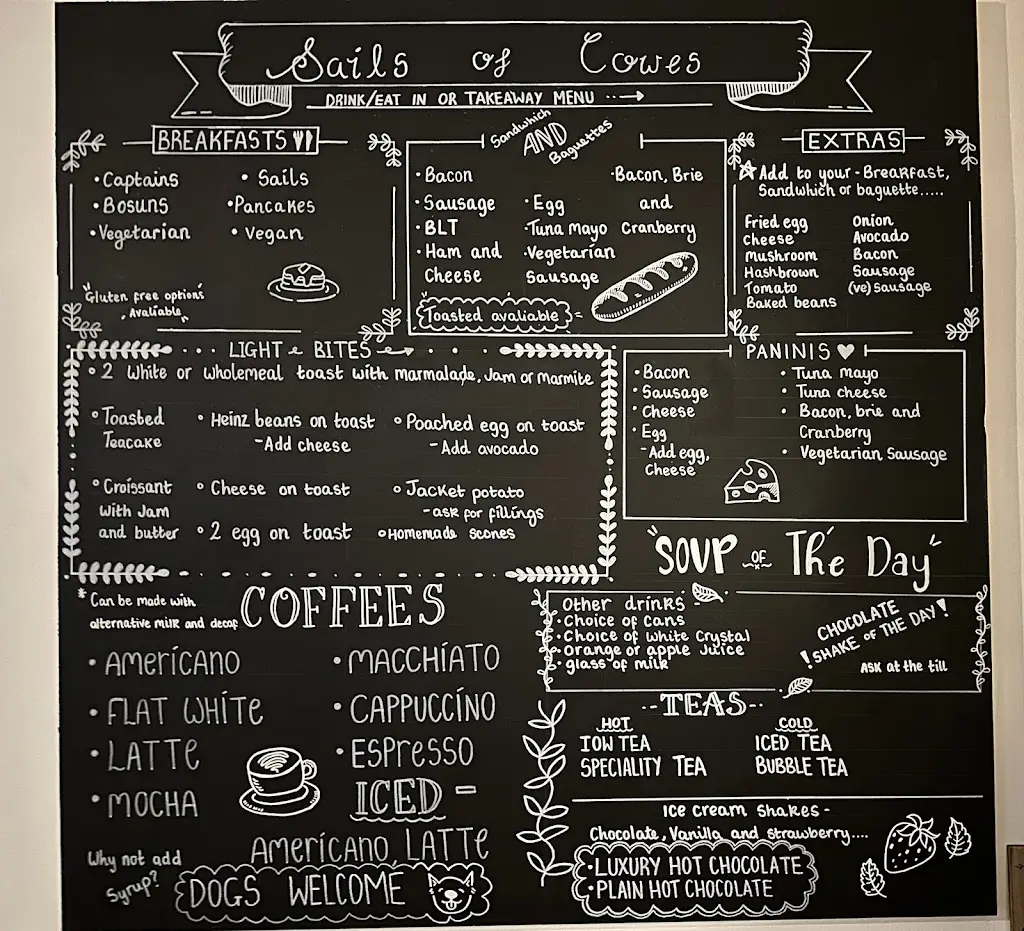 Sails of Cowes
DRINK/EAT IN OR TAKEAWAY MENU
BREAKFASTS
• Captains
• Bosuns
• Vegetarian
• Sails
• Pancakes
• Vegan
"Gluten free options
Avaliable"
Sandwhich
AND
Baguettes
• Bacon
• Sausage
• BLT
• Ham and
Cheese
• Egg
• Tuna Mayo
• Vegetarian
Sausage
• Bacon, Brie
and
Cranberry
Toasted avaliable
EXTRAS
Add to your - Breakfast,
Sandwhich or baguette.....
Fried egg
Cheese
Mushroom
Hashbrown
Tomato
Baked beans
Onion
Avocado
Bacon
Sausage
(ve) Sausage
LIGHT BITES
• 2 White or wholemeal toast with marmalade, Jam or Marmite
• Toasted
Teacake
• Heinz beans on toast
- Add cheese
• Poached egg on toast
- Add avocado
• Croissant
with Jam
and butter
• Cheese on toast
• 2 egg on toast
• Jacket potato
- ask for fillings
• Homemade scones
PANINIS
• Bacon
• Sausage
• Cheese
• Egg
- Add egg,
Cheese
• Tuna mayo
• Tuna cheese
• Bacon, brie and
Cranberry
• Vegetarian Sausage
"SOUP OF The Day"
* Can be made with
alternative milk and decaf
COFFEES
• AMERICANO
• FLAT WHITE
• LATTE
• MOCHA
• MACCHIATO
• CAPPUCCINO
• ESPRESSO
ICED -
AMERICANO, LATTE
Why not add
Syrup?
DOGS WELCOME
Other drinks -
• Choice of cans
• Choice of white Crystal
• Orange or apple Juice
• glass of milk
CHOCOLATE
! SHAKE OF THE DAY!
ASK at the till
TEAS
HOT
IOW TEA
SPECIALITY TEA
COLD
ICED TEA
BUBBLE TEA
Ice cream shakes -
Chocolate, Vanilla and strawberry....
• LUXURY HOT CHOCOLATE
• PLAIN HOT CHOCOLATE